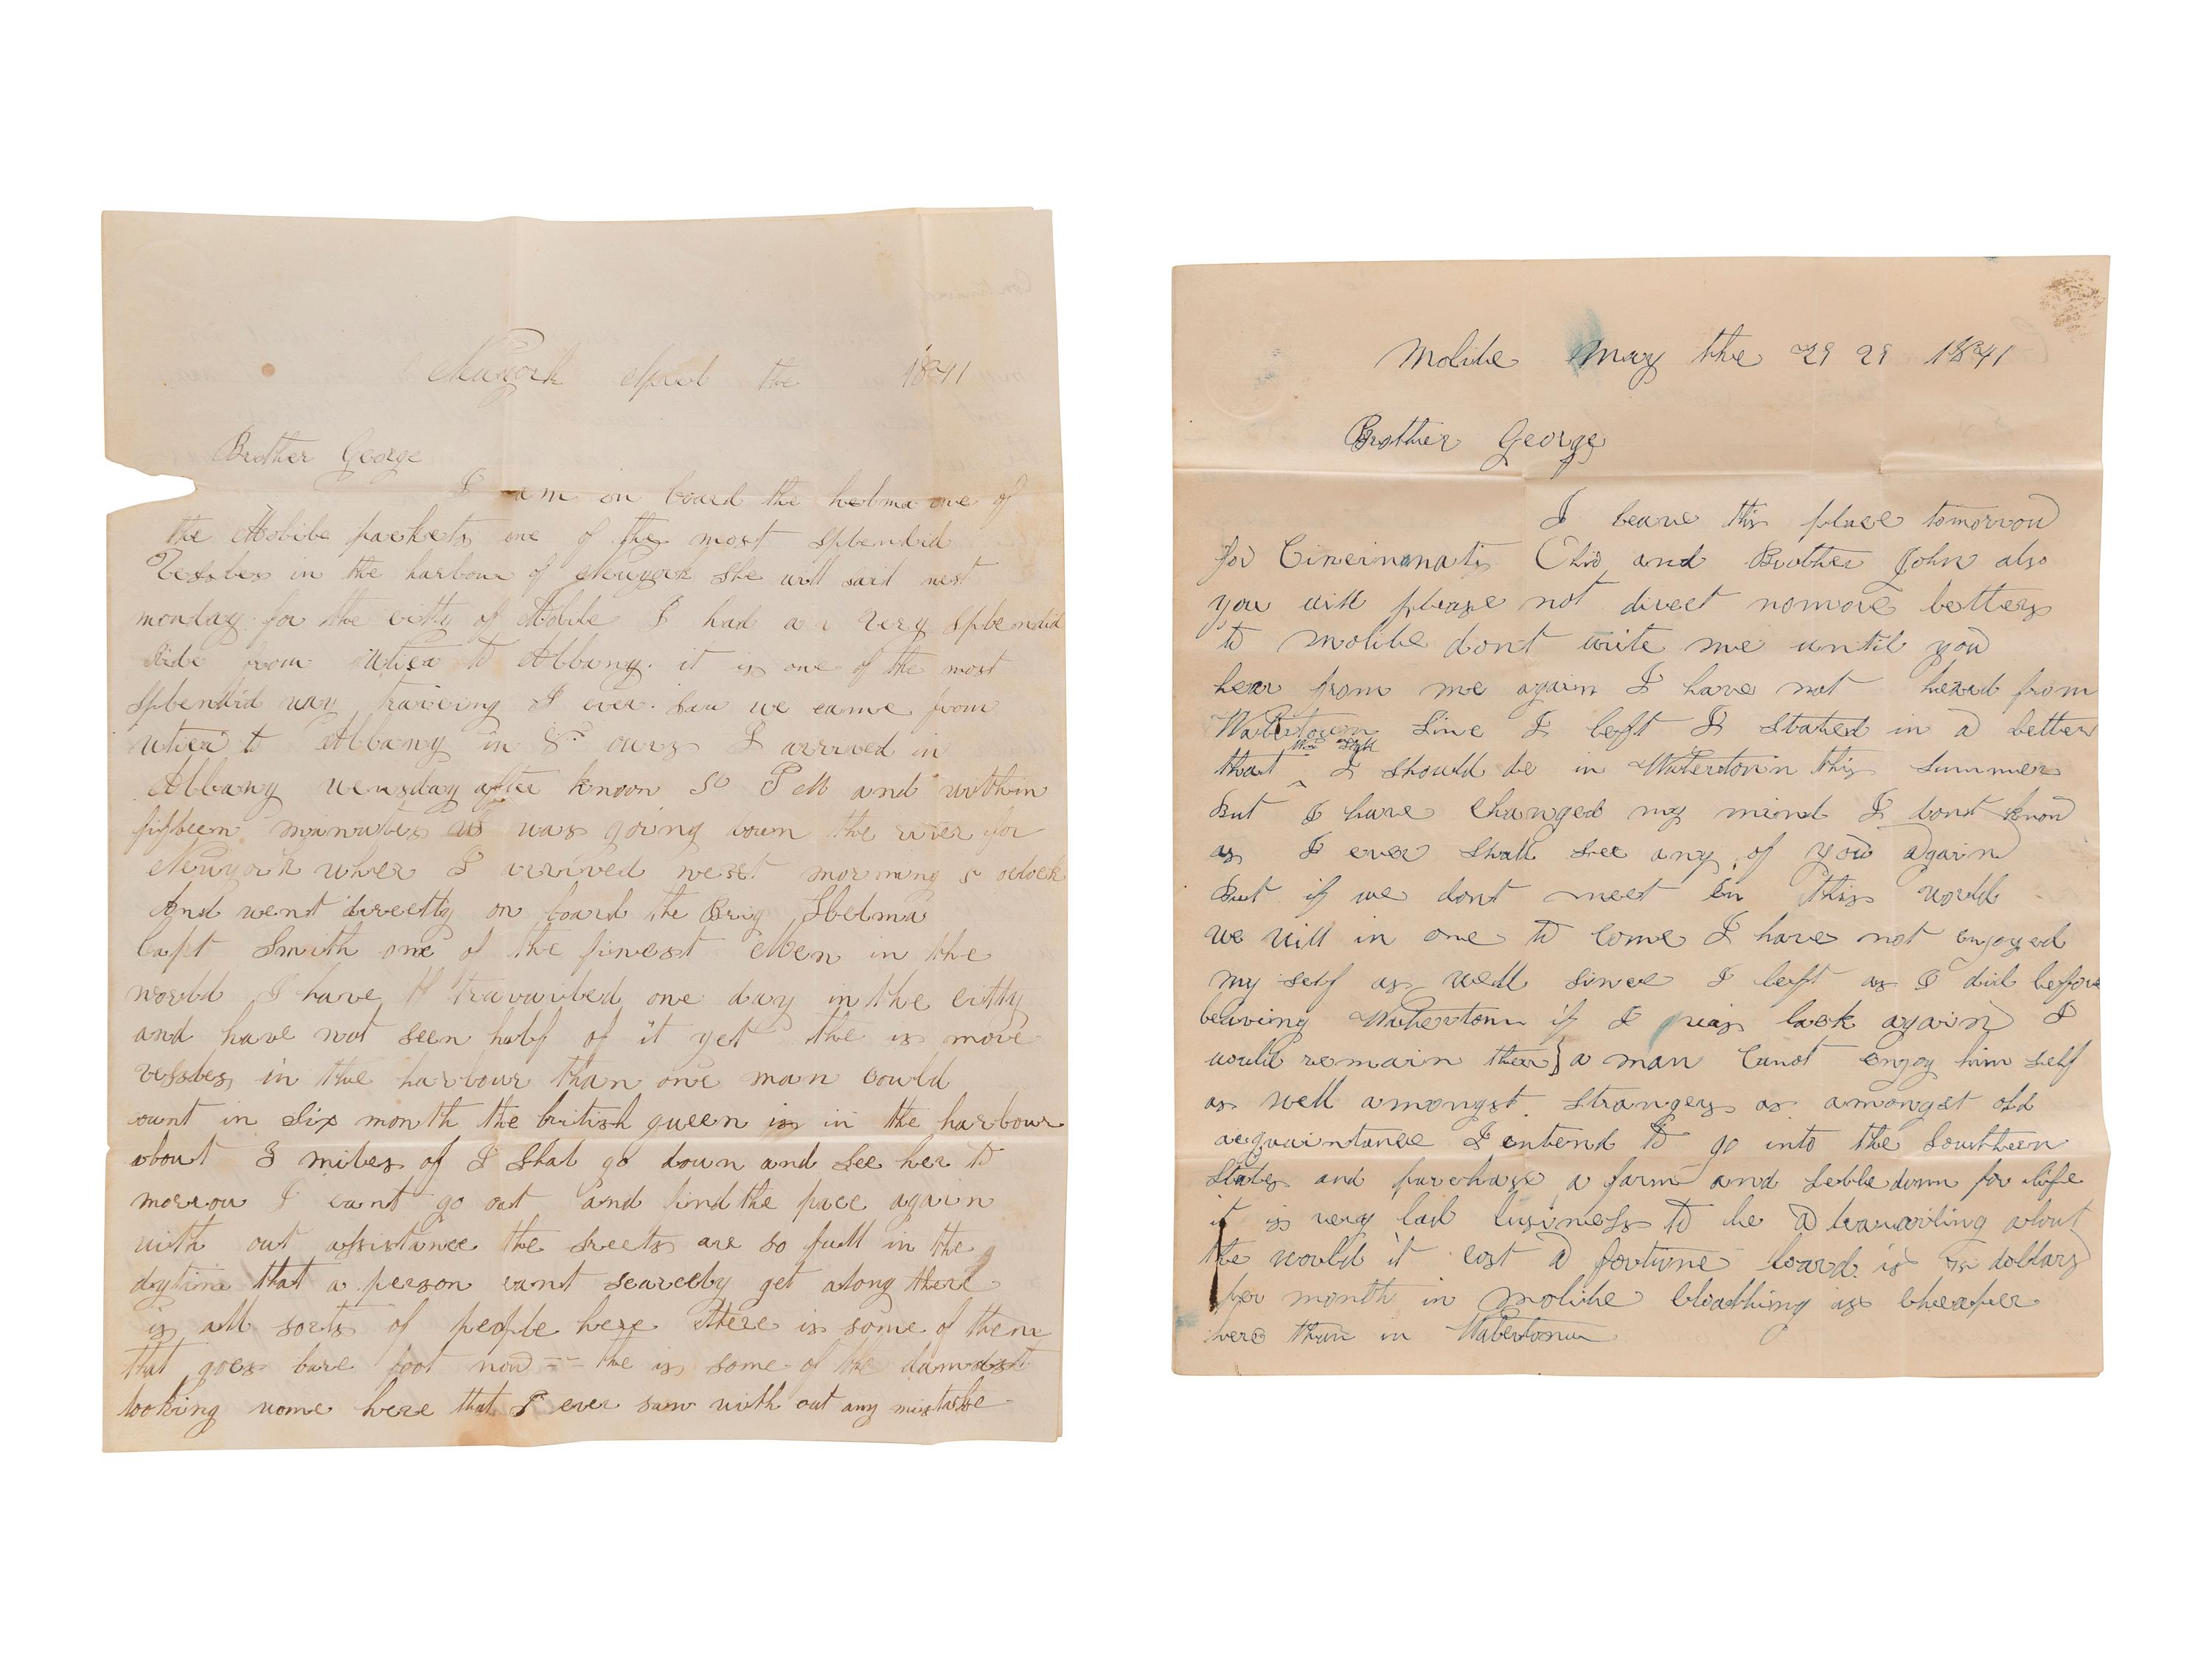 Newyork April the 1841
Brother George
I am on board the helma one of
the Mobile packets one of the most splendid
Vessles in the harbour of Newyork She will sail next
monday for the citty of Mobile I had a very splendid
Ride from Utica to Albany. it is one of the most
splendid way traveing I ever. saw we came from
utica to Albany in 8 ours I arrived in
Albany wensday after knoon 5 P M and within
fifteen minnutes was going down the river for
Newyork wher I arrived nest morning 5 oclock
And went directly on board the Brig Shelma
Capt Smith one of the finest Men in the
world I have travailed one day in the citty
and have not seen half of it yet the is more
vessles in the harbour than one man could
count in six month the british queen is in the harbour
about 3 miles of I shal go down and see her to
morrow I cant go out and find the place again
with out assistance the streets are so full in the
daytime that a person cant scarcely get along there
is all sorts of people here there is some of them
that goes bare foot now -- the is some of the damdest
looking wome here that I ever saw with out any mistake
Mobile May the 29 29 1841
Brother George
I leave this place tomorrow
for Cincinnati Ohio and Brother John also
you will please not direct nomore letters
to Mobile dont write me until you
hear from me again I have not heard from
Watertown Sinc I left I stated in a letter
that I should be in Watertown this summer
But I have changed my mind I dont know
as I ever shall see any of you again
But if we dont meet in this world
we will in one to come I have not enjoyed
my self as well since I left as I did before
leaving Watertown if I was back again I
would remain there a man canot enjoy him self
as well amongst strangers as amongst old
acquaintance I entend to go into the Southern
States and purchase a farm and settle down for life
it is very bad business to be a travailing about
the world it cost a fortune board is dollars
per month in Mobile cloathing is cheaper
here than in Watertown